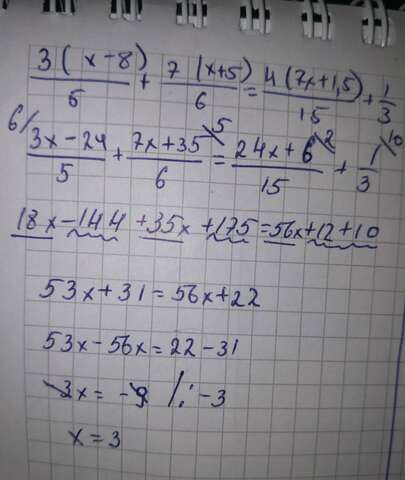 3(x-8)/5 + 7(x+5)/6 = 4(7x+1,5)/15 + 1/3
6/ 3x-24/5 + 7x+35/6 \5 = 24x+6/15 \2 + 1/3 \10
18x-144+35x+175=56x+12+10
53x+31=56x+22
53x-56x=22-31
-3x=-9 /:-3
x=3